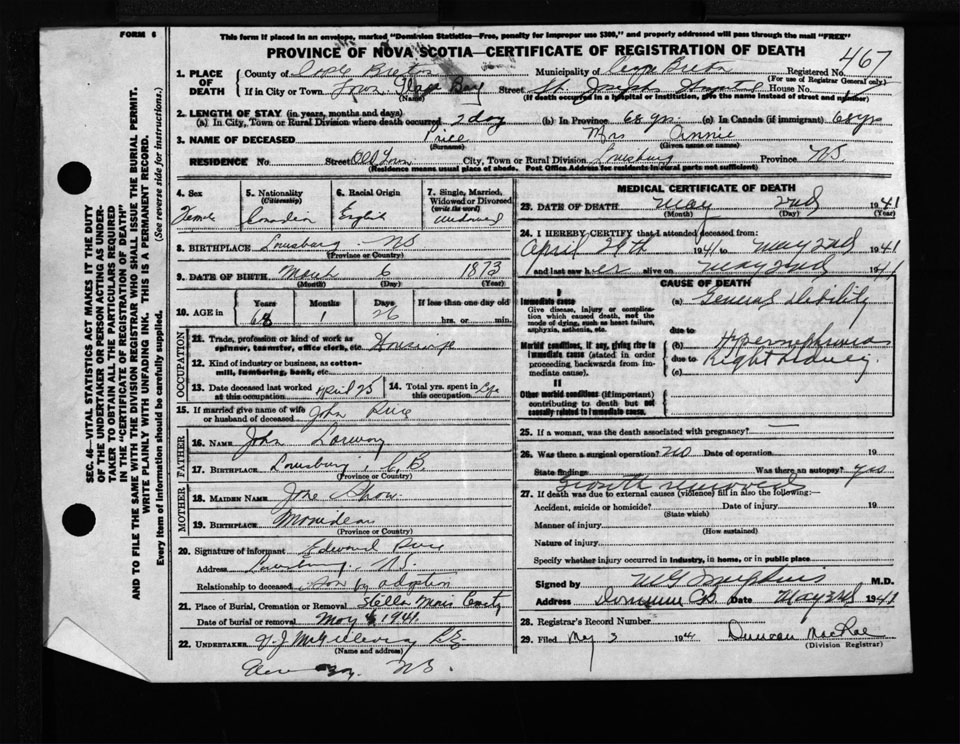 FORM 6
This form if placed in an envelope, marked "Dominion Statistics—Free, penalty for improper use $300," and properly addressed will pass through the mail "FREE"
PROVINCE OF NOVA SCOTIA—CERTIFICATE OF REGISTRATION OF DEATH
Registered No. 467
(For use of Registrar General only)
1. PLACE OF DEATH
County of Cape Breton Municipality of Cape Breton
If in City or Town Town Glace Bay Street St. Joseph's Hospital House No.
(Name) (If death occurred in a hospital or institution, give the name instead of street and number)
2. LENGTH OF STAY (in years, months and days)
(a) In City, Town or Rural Division where death occurred 2 day (b) In Province 68 yrs. (c) In Canada (if immigrant) 68 yrs
3. NAME OF DECEASED Price Mrs Annie
(Surname) (Given name or names)
RESIDENCE No Street Old Town City, Town or Rural Division Louisburg Province NS
(Residence means usual place of abode. Post Office Address for residents in rural parts not sufficient)
4. Sex
Female
5. Nationality
(Citizenship)
Canadian
6. Racial Origin
English
7. Single, Married, Widowed or Divorced
(write the word)
Widowed
8. BIRTHPLACE Louisburg NS
(Province or Country)
9. DATE OF BIRTH March 6 1873
(Month) (Day) (Year)
10. AGE in
Years Months Days If less than one day old
68 1 26 hrs. or min.
OCCUPATION
11. Trade, profession or kind of work as spinner, teamster, office clerk, etc. Housewife
12. Kind of industry or business, as cotton-mill, lumbering, bank, etc.
13. Date deceased last worked at this occupation April 25
14. Total yrs. spent in this occupation Life
15. If married give name of wife or husband of deceased John Price
FATHER
16. NAME John
17. BIRTHPLACE Louisburg, C.B.
(Province or Country)
MOTHER
18. MAIDEN NAME Shaw
19. BIRTHPLACE
(Province or Country)
20. Signature of informant Edward Price
Address Louisburg, NS.
Relationship to deceased Son by adoption
21. Place of Burial, Cremation or Removal Stella Maris
Date of burial or removal May 1941
22. UNDERTAKER
(Name and address)
NS.
MEDICAL CERTIFICATE OF DEATH
23. DATE OF DEATH May 2nd 1941
(Month) (Day) (Year)
24. I HEREBY CERTIFY that I attended deceased from:
April 1941 to May 2nd 1941
and last saw her alive on May 2nd 1941
CAUSE OF DEATH
I
Immediate cause
Give disease, injury or complication which caused death, not the mode of dying, such as heart failure, asphyxia, asthenia, etc.
(a) General debility
due to
Morbid conditions, if any, giving rise to immediate cause (stated in order proceeding backwards from immediate cause).
(b) Hypernephroma
due to Right kidney
(c)
II
Other morbid conditions (if important) contributing to death but not causally related to immediate cause.
25. If a woman, was the death associated with pregnancy? —
26. Was there a surgical operation? No Date of operation 19
State findings Was there an autopsy? yes
Growth removed
27. If death was due to external causes (violence) fill in also the following:—
Accident, suicide or homicide? Date of injury 19
(State which)
Manner of injury
(How sustained)
Nature of injury
Specify whether injury occurred in industry, in home, or in public place
Signed by M.D.
Address Dominion CB Date May 2nd 1941
28. Registrar's Record Number
29. Filed May 3 1941 Duncan MacRae
(Division Registrar)
SEC. 46—VITAL STATISTICS ACT MAKES IT THE DUTY
OF THE UNDERTAKER OR PERSON ACTING AS UNDER-
TAKER TO OBTAIN ALL THE PARTICULARS REQUIRED
IN THE "CERTIFICATE OF REGISTRATION OF DEATH"
AND TO FILE THE SAME WITH THE DIVISION REGISTRAR WHO SHALL ISSUE THE BURIAL PERMIT.
WRITE PLAINLY WITH UNFADING INK. THIS IS A PERMANENT RECORD.
Every item of information should be carefully supplied. (See reverse side for instructions.)